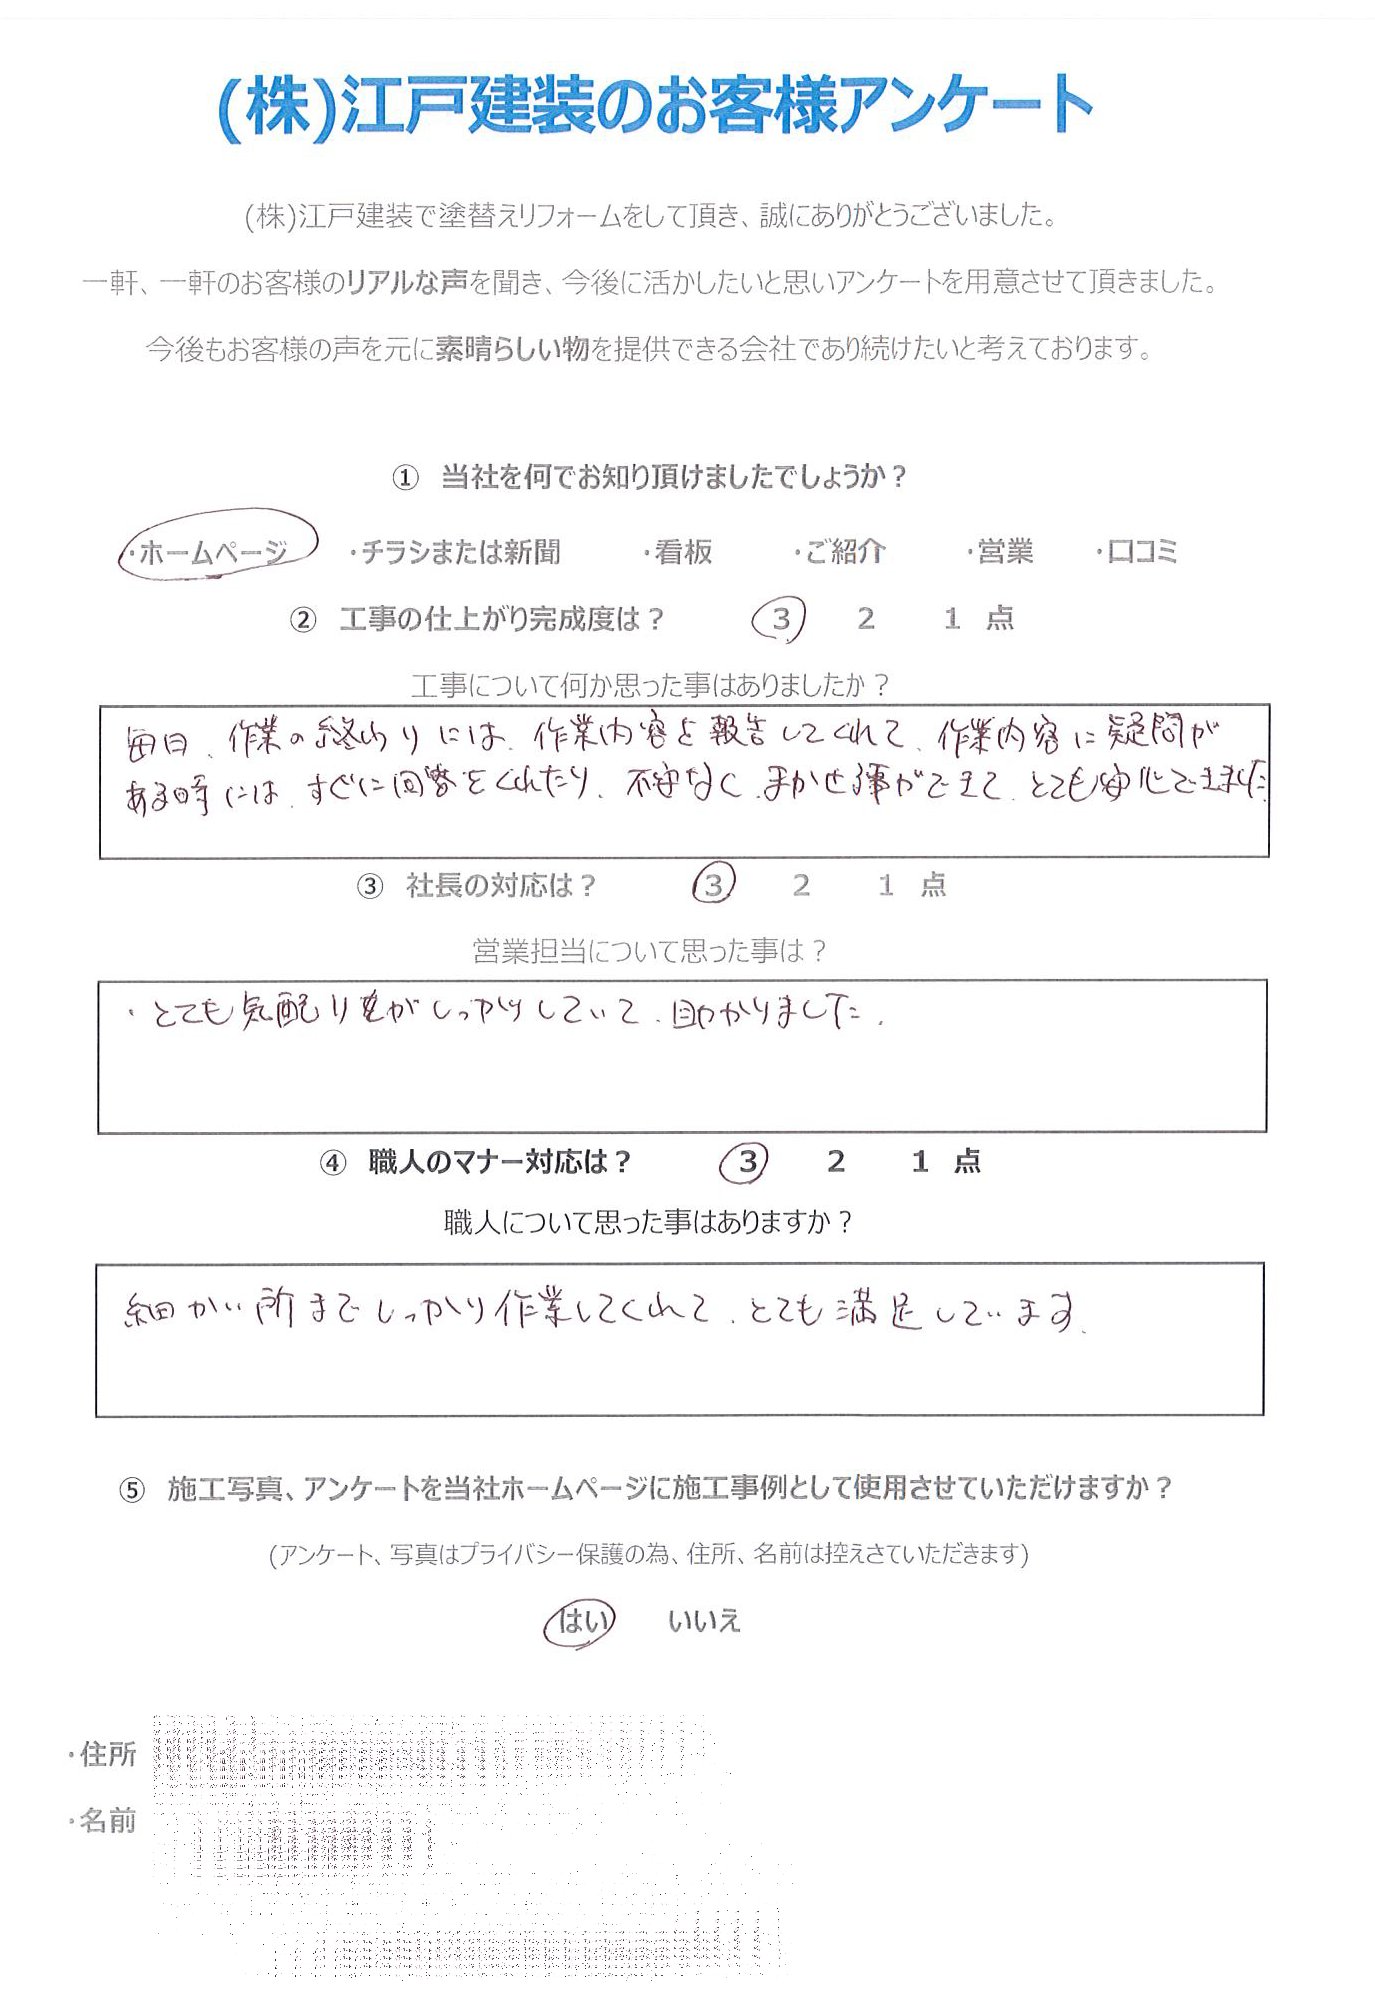 (株)江戸建装のお客様アンケート
(株)江戸建装で塗替えリフォームをして頂き、誠にありがとうございました。
一軒、一軒のお客様のリアルな声を聞き、今後に活かしたいと思いアンケートを用意させて頂きました。
今後もお客様の声を元に素晴らしい物を提供できる会社であり続けたいと考えております。
① 当社を何でお知り頂けましたでしょうか？
・ホームページ ・チラシまたは新聞 ・看板 ・ご紹介 ・営業 ・口コミ
② 工事の仕上がり完成度は？ 3 2 1 点
工事について何か思った事はありましたか？
毎日、作業の終わりには、作業内容を報告してくれて、作業内容に疑問が
ある時には、すぐに回答をくれたり、不安なく、まかせる事ができて、とても安心できました
③ 社長の対応は？ 3 2 1 点
営業担当について思った事は？
・とても気配りがしっかりしていて、助かりました。
④ 職人のマナー対応は？ 3 2 1 点
職人について思った事はありますか？
細かい所までしっかり作業してくれて、とても満足しています。
⑤ 施工写真、アンケートを当社ホームページに施工事例として使用させていただけますか？
(アンケート、写真はプライバシー保護の為、住所、名前は控えさていただきます)
はい いいえ
・住所
・名前